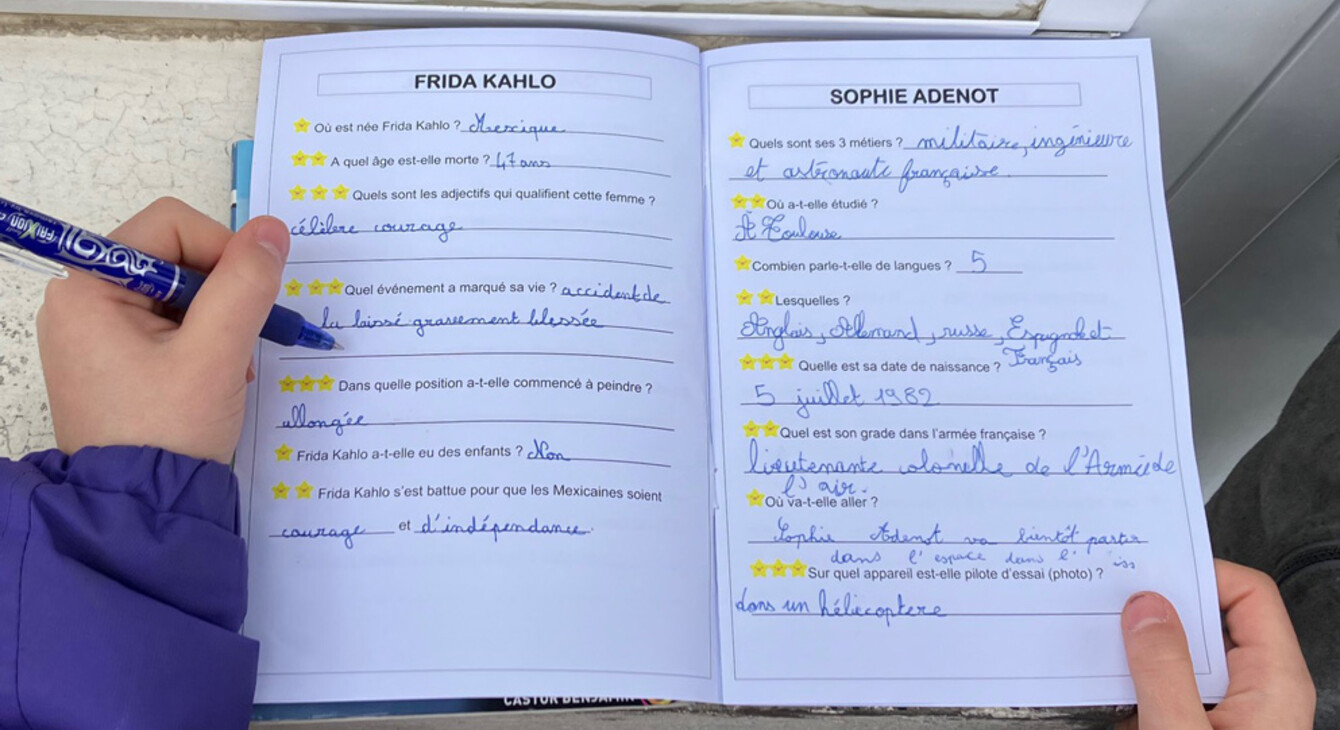 FRIDA KAHLO
Où est née Frida Kahlo ? Mexique
A quel âge est-elle morte ? 47 ans
Quels sont les adjectifs qui qualifient cette femme ?
célèbre courage
Quel événement a marqué sa vie ? accident de
la laissé gravement blessée
Dans quelle position a-t-elle commencé à peindre ?
allongée
Frida Kahlo a-t-elle eu des enfants ? Non
Frida Kahlo s'est battue pour que les Mexicaines soient
courage et d'indépendance.
SOPHIE ADENOT
Quels sont ses 3 métiers ? militaire, ingénieure
et astronaute française.
Où a-t-elle étudié ?
À Toulouse
Combien parle-t-elle de langues ? 5
Lesquelles ?
Anglais, Allemand, russe, Espagnol et
Français
Quelle est sa date de naissance ?
5 juillet 1982
Quel est son grade dans l'armée française ?
lieutenante colonelle de l'Armée de
l'air.
Où va-t-elle aller ?
Sophie Adenot va bientôt partir
dans l'espace dans l'iss
Sur quel appareil est-elle pilote d'essai (photo) ?
dans un hélicoptere
FRIXION